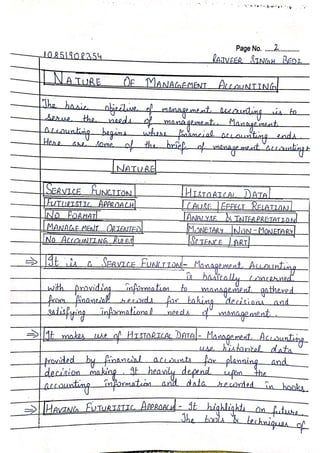 Page No. 2
10851908354
RAJVEER SINGH BEDI
NATURE OF MANAGEMENT ACCOUNTING
The basic objective of management accounting is to
serve the needs of management. Management
accounting begins where financial accounting ends.
Here are some of the brief of management accounting:
NATURE
SERVICE FUNCTION HISTORICAL DATA
FUTURISTIC APPROACH CAUSE EFFECT RELATION
NO FORMAT ANALYSE & INTERPRETATION
MANAGEMENT ORIENTED MONETARY NON-MONETARY
NO ACCOUNTING RULES SCIENCE ART
⇒ It is a SERVICE FUNCTION - Management Accounting
is basically concerned
with providing information to management gathered
from financial records for taking decisions and
satisfying informational needs of management.
⇒ It makes use of HISTORICAL DATA - Management Accounting
use historical data
provided by financial accounts for planning and
decision making. It heavily depend upon the
accounting information and data recorded in books.
⇒ HAVING FUTURISTIC APPROACH - It highlights on future.
The tools & techniques of